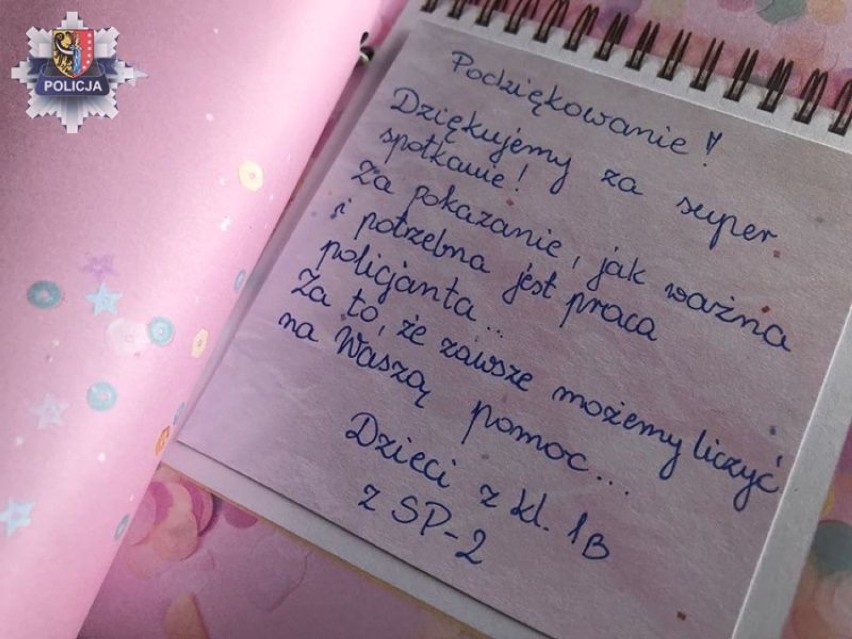 POLICJA
Podziękowanie!
Dziękujemy za super
spotkanie!
Za pokazanie, jak ważna
i potrzebna jest praca
policjanta...
Za to, że zawsze możemy liczyć
na Waszą pomoc...
Dzieci z kl. 1B
z SP-2